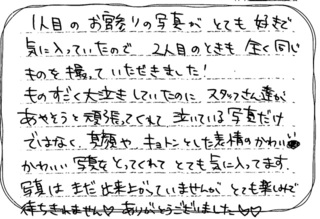 1人目のお宮参りの写真がとても好きで
気に入っていたので 2人目のときも全く同じ
ものを撮っていただきました!
ものすごく大泣きしていたのに スタッフさん達が
あやそうと頑張ってくれて 泣いている写真だけ
ではなく、笑顔や キョトンとした表情のかわいい
かわいい 写真をとってくれて とても気に入ってます。
写真は まだ出来上がっていませんが、とても楽しみで
待ちきれません♡ ありがとうございました♡♡